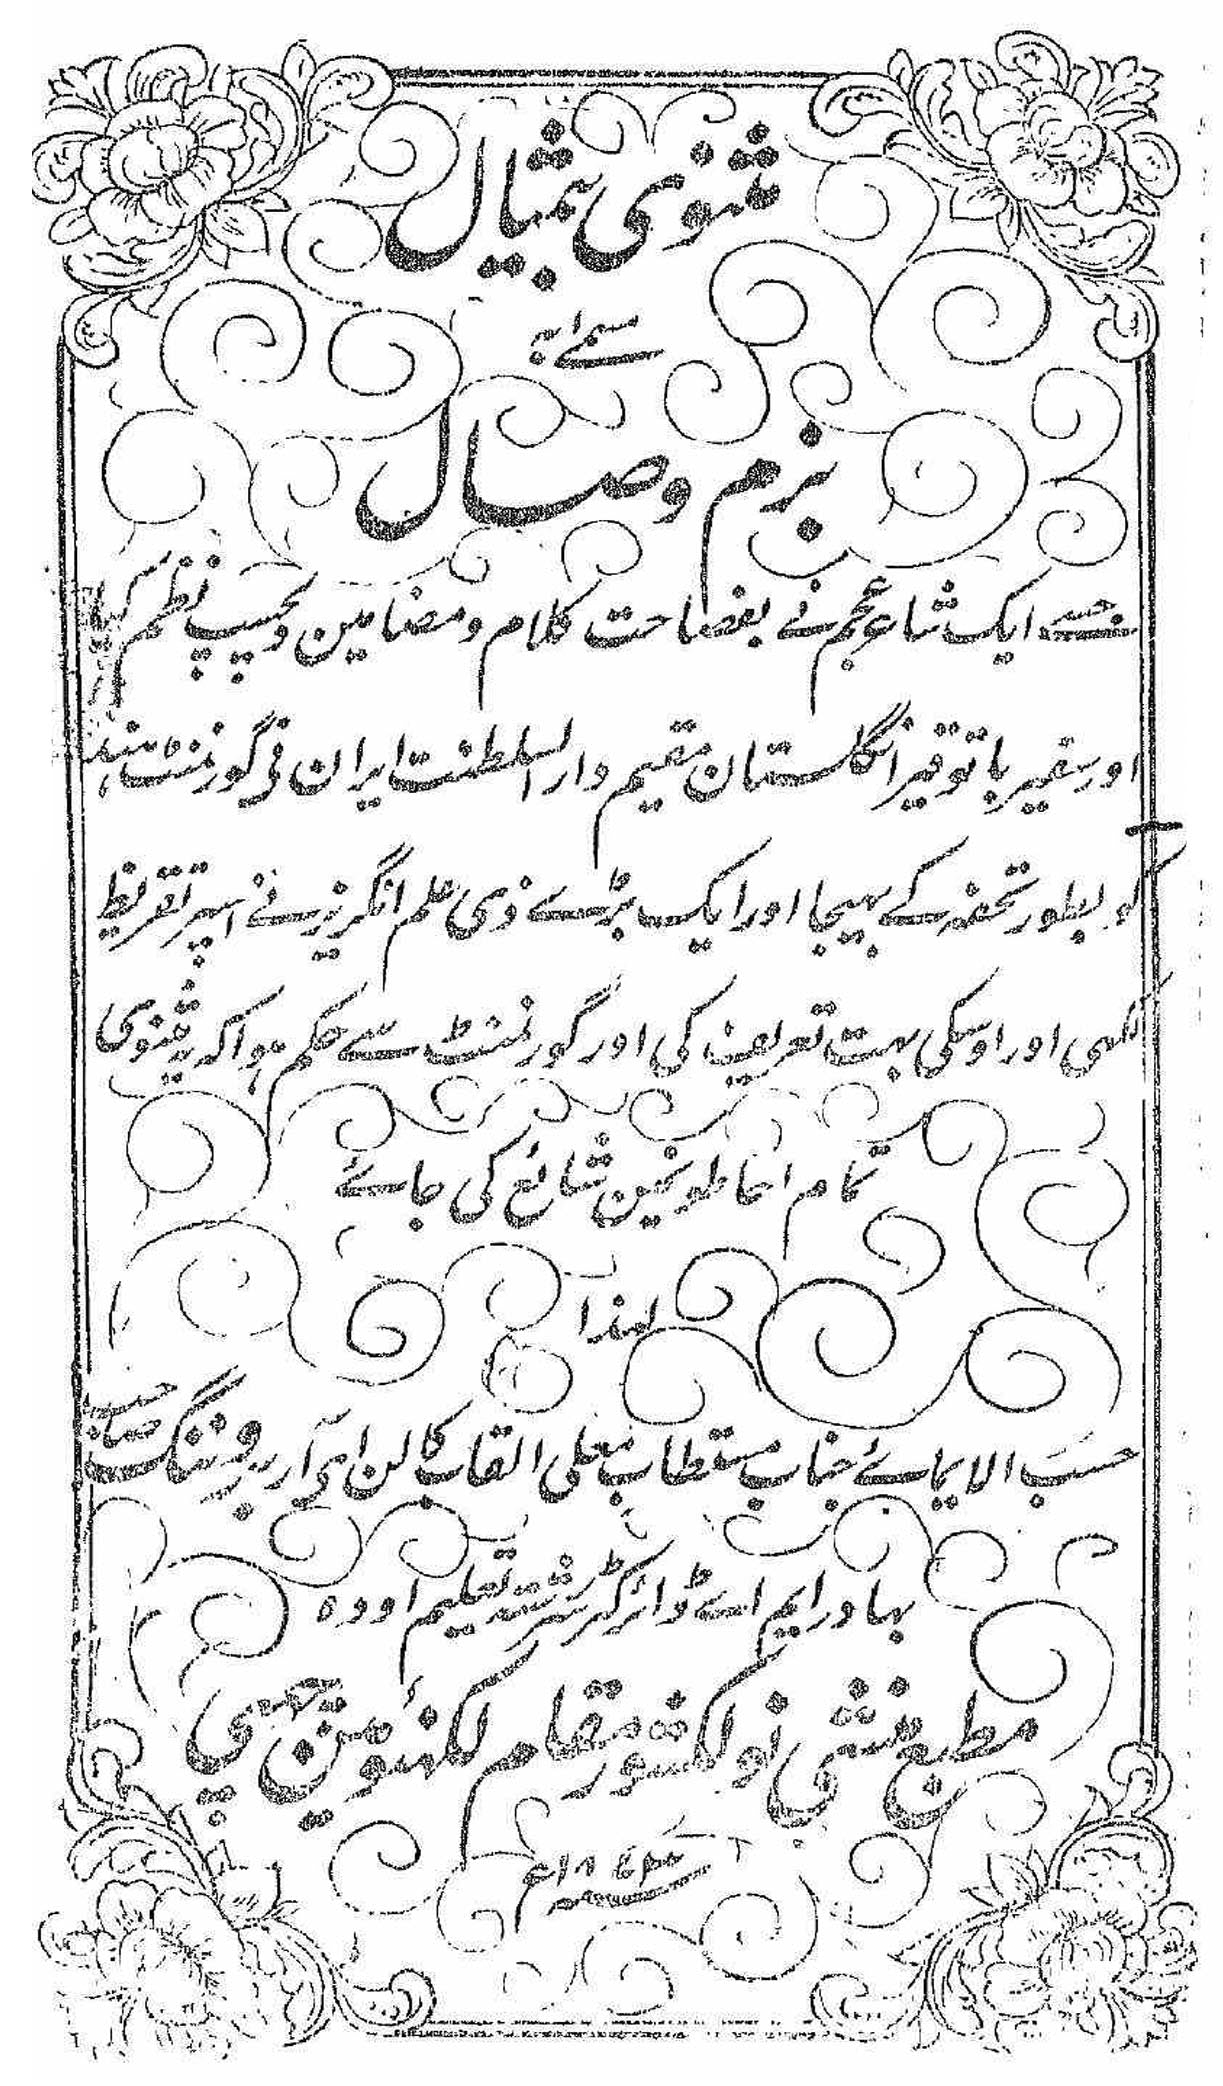 مثنوی بیمثال
مسمےٰ بہ
بزم وصال
جسے ایک شاعر عجم نے بفصاحت کلام و مضامین دلچسپ نظم کیا
اور سفیر باتوقیر انگلستان مقیم دار السلطنت ایران نے گورنمنٹ ہند
کو بطور تحفہ کے بہیجا اور ایک بڑے ذی علم انگریز نے اسپر تقریظ
لکہی اور اوسکی بہت تعریف کی اور گورنمنٹ سے حکم ہوا کہ یہ مثنوی
تمام احاطونمین شائع کی جائے
لہذا
حسب الایمائے جناب مستطاب معلی القاب کالن ای آر بروننگ صاحب
بہادر ایم اے ڈائرکٹر سررشتہ تعلیم اودہ
مطبع منشی نولکشور مقام لکہنؤ مین چھپی